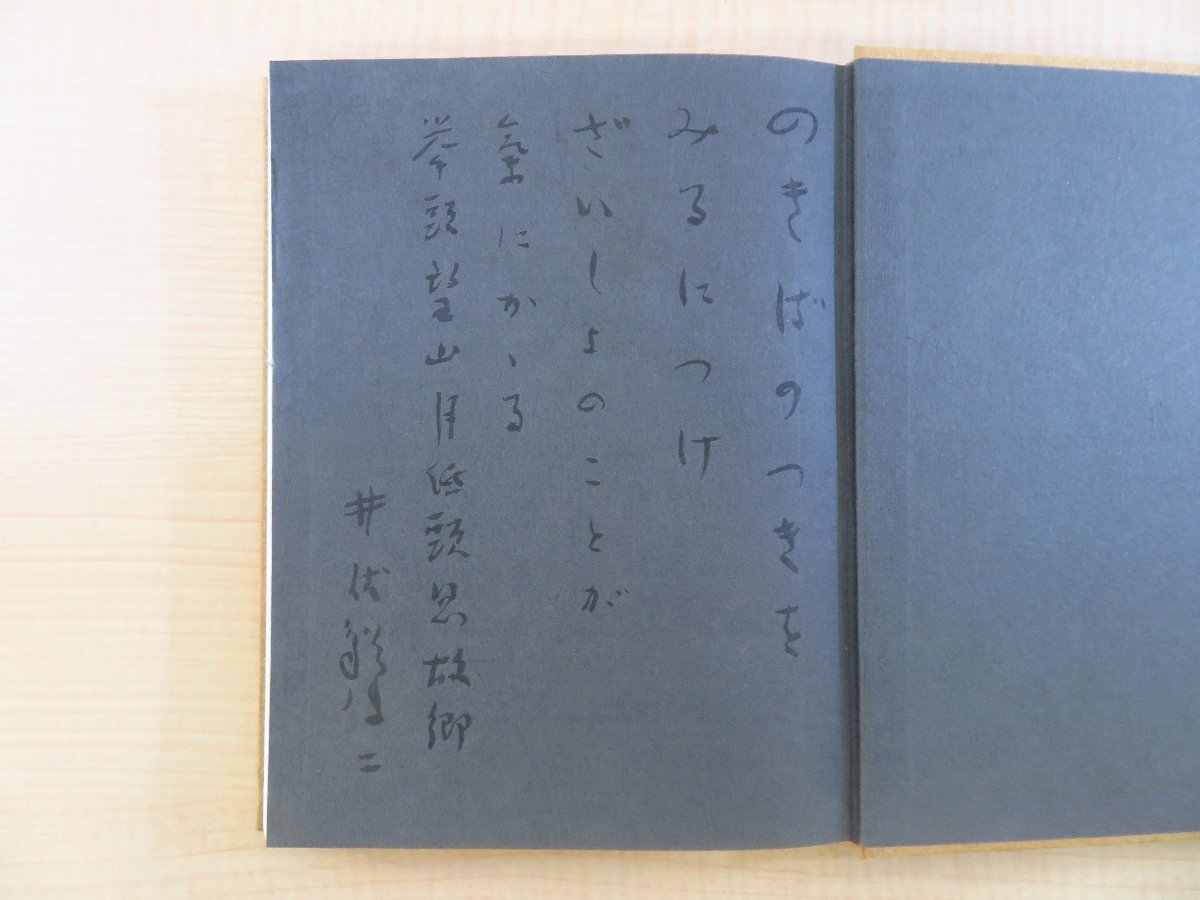 のきばのつきを
みるにつけ
ざいしよのことが
気にかゝる
挙頭望山月低頭思故郷
井伏鱒二